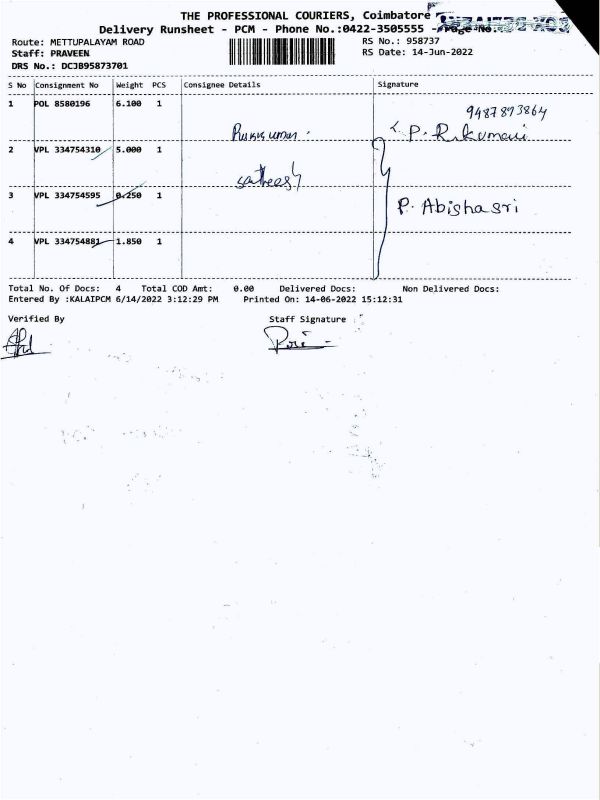 THE PROFESSIONAL COURIERS, Coimbatore
Delivery Runsheet - PCM - Phone No.:0422-3505555 - Page No.
Route: METTUPALAYAM ROAD
RS No.: 958737
Staff: PRAVEEN
RS Date: 14-Jun-2022
DRS No.: DCJB95873701
S No Consignment No Weight PCS Consignee Details Signature
1 POL 8580196 6.100 1
9487893864
P.
2 VPL 334754310 5.000 1
sathees
3 VPL 334754595 0.250 1
P. Abishasri
4 VPL 334754881 1.850 1
Total No. Of Docs: 4 Total COD Amt: 0.00 Delivered Docs: Non Delivered Docs:
Entered By :KALAIPCM 6/14/2022 3:12:29 PM Printed On: 14-06-2022 15:12:31
Verified By Staff Signature :